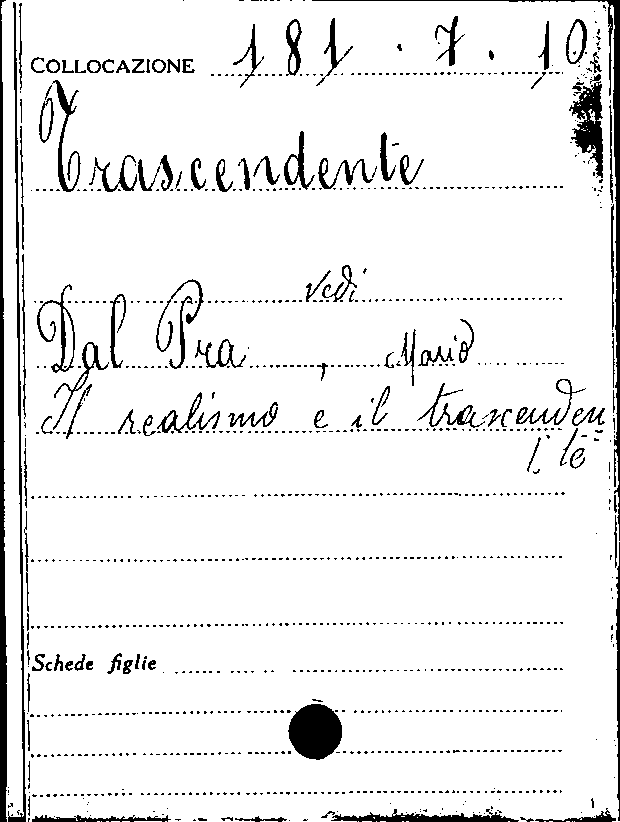 COLLOCAZIONE 181 . 7 . 10
Trascendente
vedi
Dal Pra , Mario
Il realismo e il trascenden
te
Schede figlie